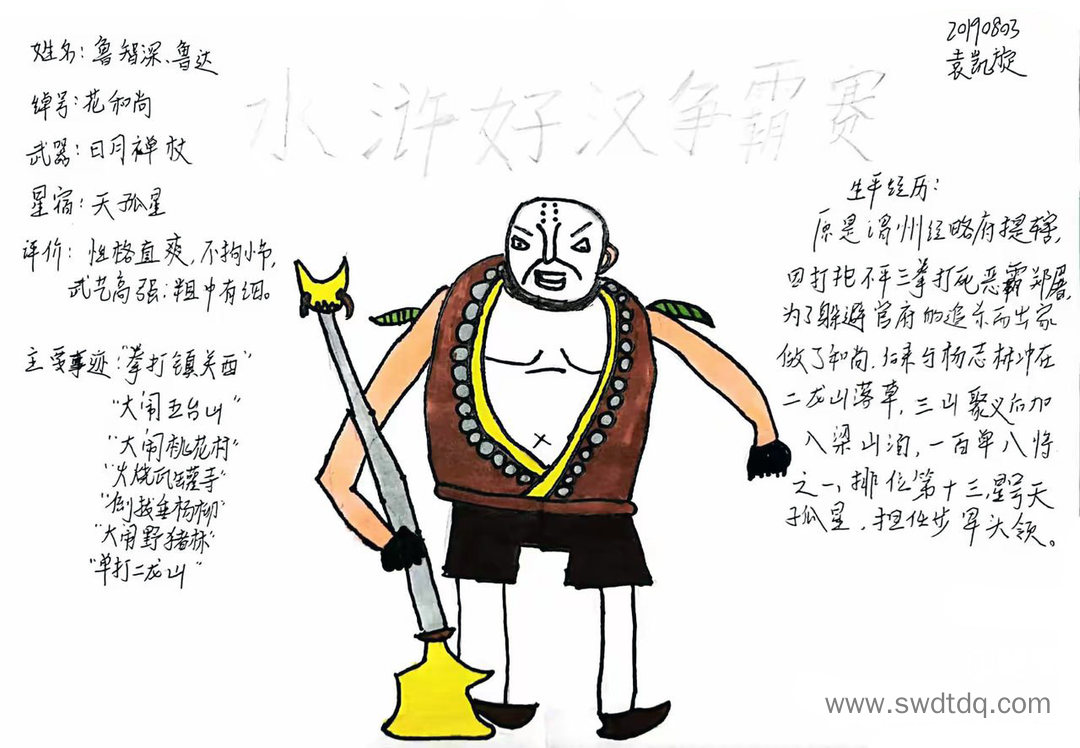 20190803
袁凯旋
水浒好汉争霸赛
姓名:鲁智深、鲁达
绰号:花和尚
武器:日月禅杖
星宿:天孤星
评价:性格直爽,不拘小节,
武艺高强;粗中有细。
主要事迹:"拳打镇关西"
"大闹五台山"
"大闹桃花村"
"火烧瓦罐寺"
"倒拔垂杨柳"
"大闹野猪林"
"单打二龙山"
生平经历:
原是渭州经略府提辖,
因打抱不平三拳打死恶霸郑屠,
为了躲避官府的追杀而出家
做了和尚,后来与杨志林冲在
二龙山落草,三山聚义后加
入梁山泊,一百单八将
之一,排位第十三,星号天
孤星,担任步军头领。
www.swdtdq.com